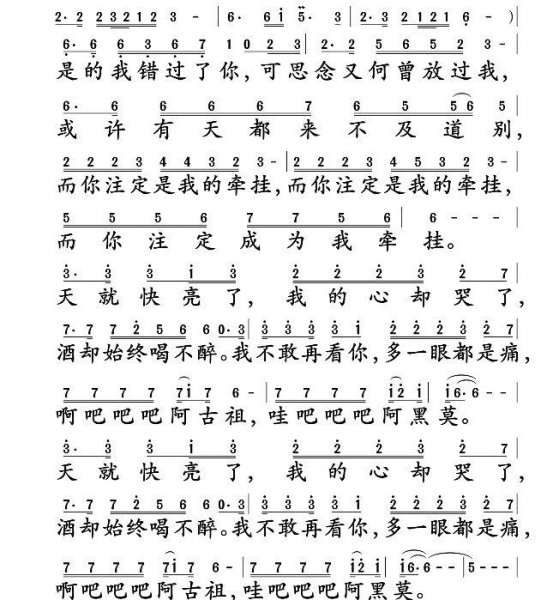 2· 2 2321 2 3 - | 6· 6i 5· 3 | 2· 2 2321 2 6 - )
6· 6 6 3 6 7 1 0 2 3 | 2· 2 0 5 6 5 2 3 - |
是的我错过了你，可思念又何曾放过我，
6· 6 6 6 6 7 | 6 5 5 5 6 5 |
或许有天都来不及道别，
2 2 2 3 4 4 3 2 3 - | 2 2 2 3 4 5 3 2 3 - |
而你注定是我的牵挂，而你注定是我的牵挂，
5 5 5 6 7 7 5 6 | 6 - - - |
而你注定成为我牵挂。
3· 3 3 i 3 | 2 2 2 3 2 7 |
天就快亮了，我的心却哭了，
7· 7 7 2 5 6 6 0· 3 | 3 3 3 i 3 | 2 2 2 3 2 7 |
酒却始终喝不醉。我不敢再看你，多一眼都是痛，
7 7 7 7 7i 7 6 - | 7 7 7 7 i2 i | i6· 6 - - |
啊吧吧吧阿古祖，哇吧吧吧阿黑莫。
3· 3 3 i 3 | 2 2 2 3 2 7 |
天就快亮了，我的心却哭了，
7· 7 7 2 5 6 6 0· 3 | 3 3 3 i 3 | 2 2 2 3 2 7 |
酒却始终喝不醉。我不敢再看你，多一眼都是痛，
7 7 7 7 7i 7 6 - | 7 7 7 7 i2 i | i6· 6 - - | 5 - - - |
啊吧吧吧阿古祖，哇吧吧吧阿黑莫。